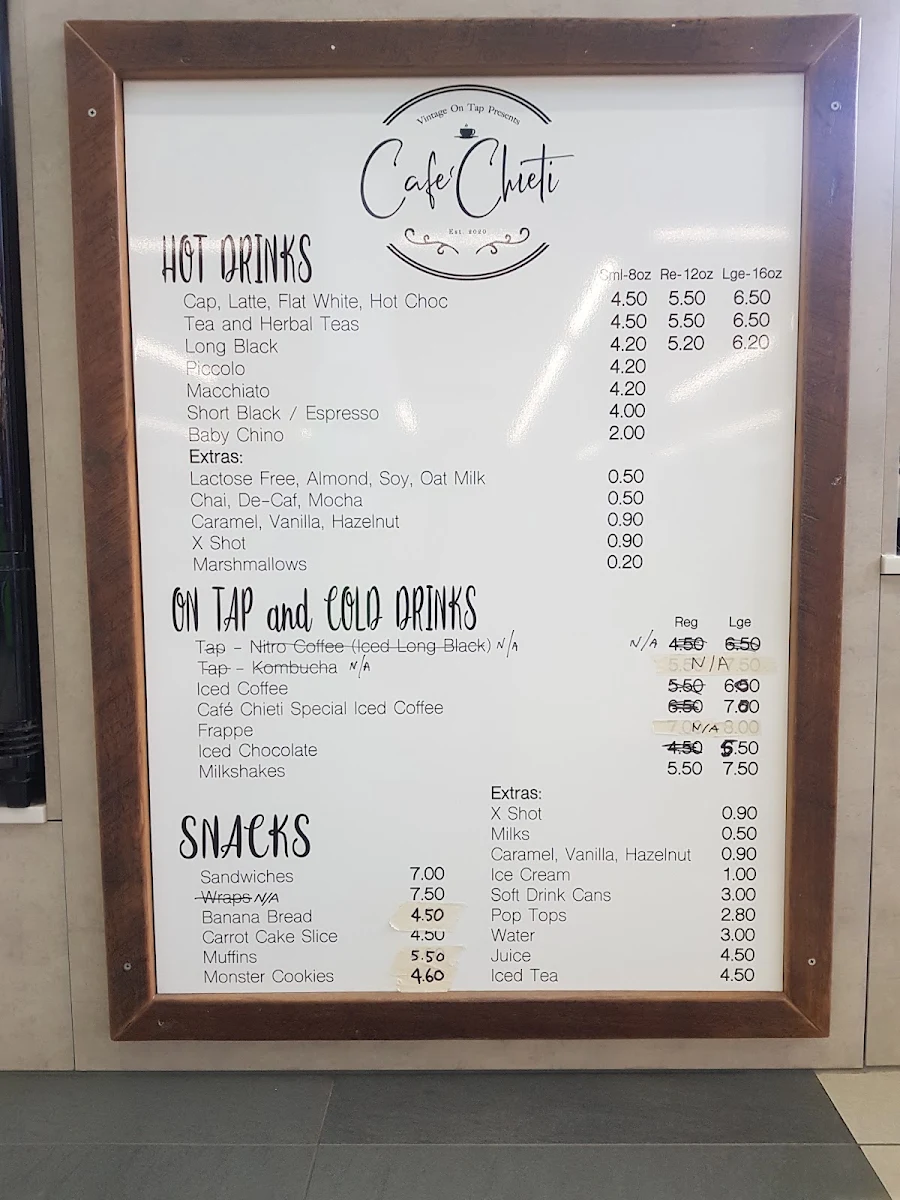 Vintage On Tap Presents
Cafe' Chieti
Est. 2020
HOT DRINKS
Sml-8oz Re-12oz Lge-16oz
Cap, Latte, Flat White, Hot Choc 4.50 5.50 6.50
Tea and Herbal Teas 4.50 5.50 6.50
Long Black 4.20 5.20 6.20
Piccolo 4.20
Macchiato 4.20
Short Black / Espresso 4.00
Baby Chino 2.00
Extras:
Lactose Free, Almond, Soy, Oat Milk 0.50
Chai, De-Caf, Mocha 0.50
Caramel, Vanilla, Hazelnut 0.90
X Shot 0.90
Marshmallows 0.20
ON TAP and COLD DRINKS
Reg Lge
Tap - Nitro Coffee (Iced Long Black) N/A N/A 4.50 6.50
Tap - Kombucha N/A N/A
Iced Coffee 5.50 6.00
Café Chieti Special Iced Coffee 6.50 7.00
Frappe N/A
Iced Chocolate 4.50 5.50
Milkshakes 5.50 7.50
Extras:
X Shot 0.90
Milks 0.50
Caramel, Vanilla, Hazelnut 0.90
Ice Cream 1.00
Soft Drink Cans 3.00
Pop Tops 2.80
Water 3.00
Juice 4.50
Iced Tea 4.50
SNACKS
Sandwiches 7.00
Wraps N/A 7.50
Banana Bread 4.50
Carrot Cake Slice 4.50
Muffins 5.50
Monster Cookies 4.60